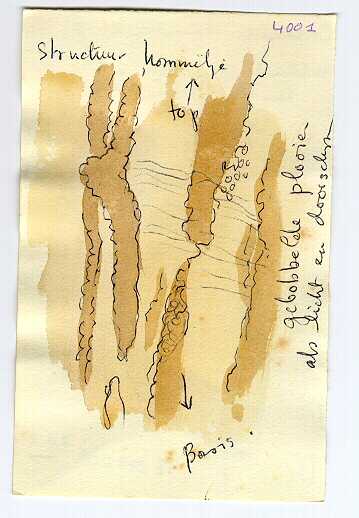 4001
Structuur hommetje
top
gebobbelde plooien
als licht en doorschijn
Basis.